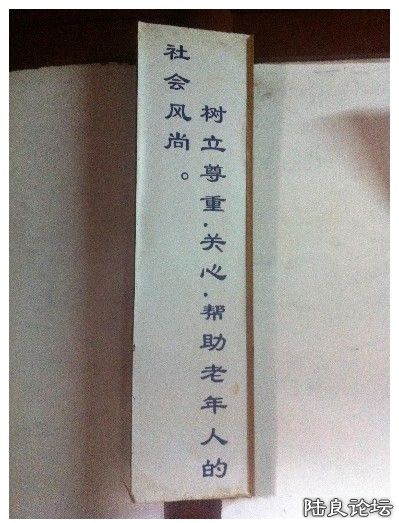 树立尊重.关心.帮助老年人的
社会风尚。
陆良论坛